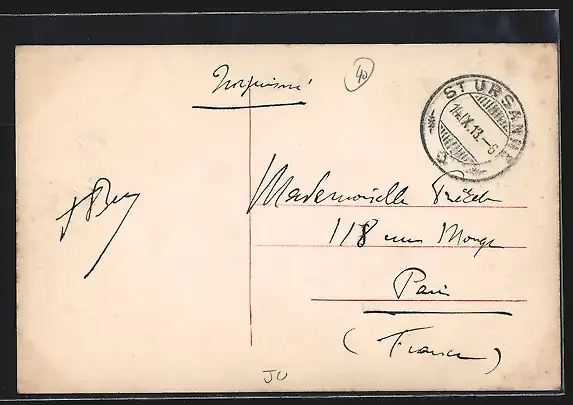 40
ST URSANNE
14.IX.13.-6
Mademoiselle
118 rue Monge
Paris
(France)
JU